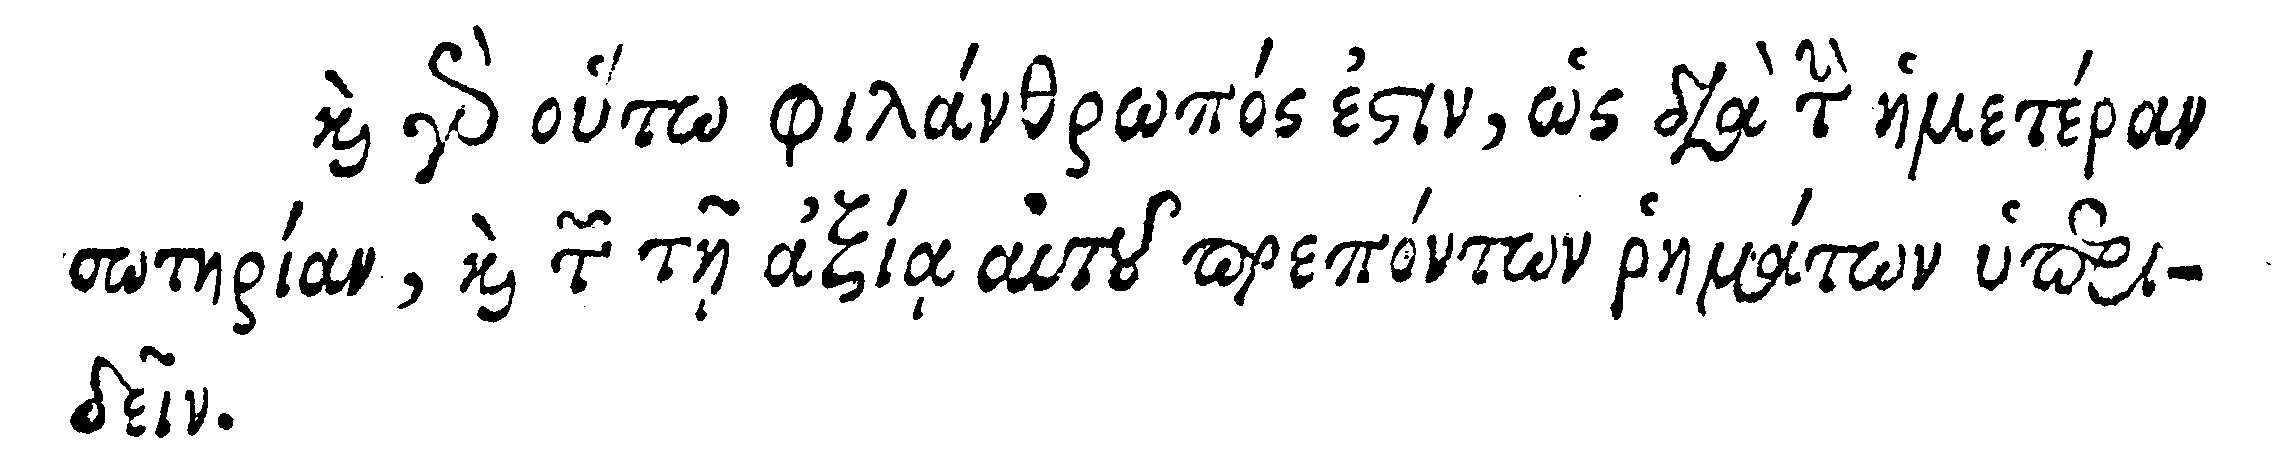 καὶ γὰρ οὕτω φιλάνθρωπός ἐστιν, ὡς διὰ τὴν ἡμετέραν
σωτηρίαν, καὶ τῶν τῇ ἀξίᾳ αὐτοῦ πρεπόντων ῥημάτων ὑπερι-
δεῖν.